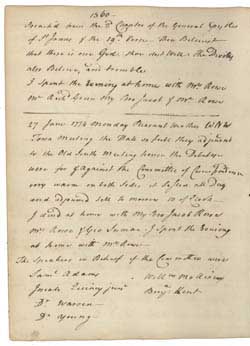 1860
Preach'd from the 2d Chapter of the General Epistle
of St James & the 19th Verse. Thou Believest
that there is one God, thou dost well. The Devils
also Believe, and tremble
I spent the Evening at home with Mrs Rowe
Mr And: Green My Bro Jacob & Mr Rowe
27 June 1774 Monday Pleasant Weather
Town Meeting the Hall so full they adjourned
to the Old South Meeting house the Debates
were for & Against the Committee of Correspondence
very warm on both sides it lasted all Day
and adjourned till to morrow 10 of Clock
I dined at home with My Bro Jacob Rowe
Mrs Rowe & Geo Inman. I spent the Evening
at home with Mrs Rowe
The Speakers in Behalf of the Committee were
Saml Adams
Josiah Quincy junr
Benj Kent
Dr Warren
Dr Young